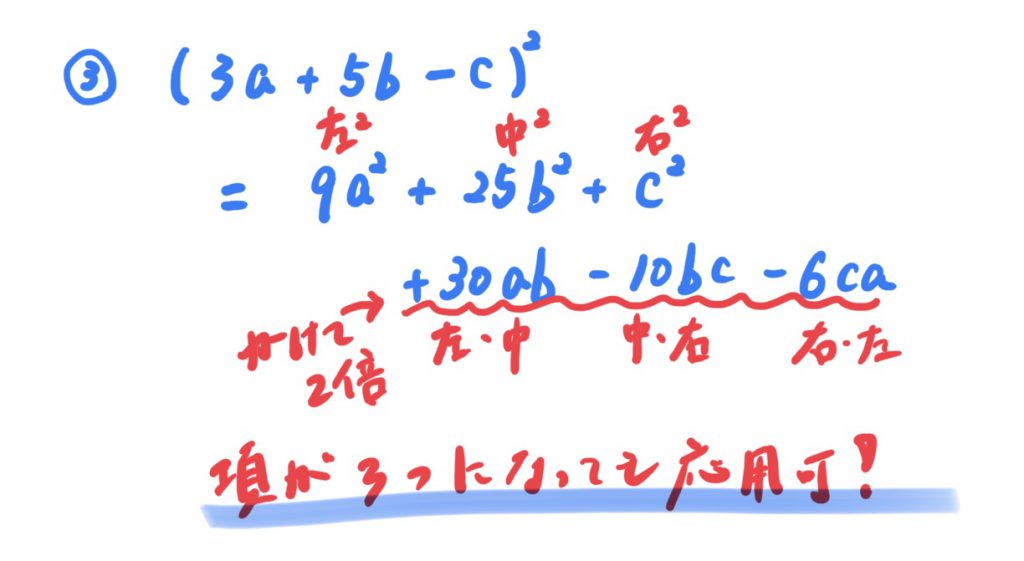 ③ (3a + 5b - c)²
左² 中² 右²
= 9a² + 25b² + c²
+30ab - 10bc - 6ca
かけて → 左・中 中・右 右・左
2倍
項が3つになっても応用可!